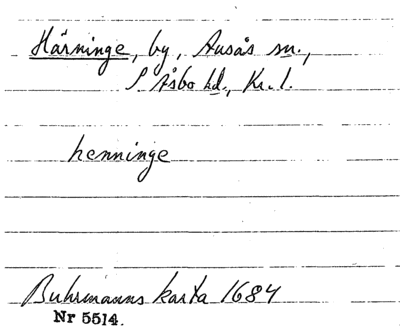 Härninge, by, Ausås sn.,
S Åsbo hd., Kr. l.
henninge
Buhrmanns karta 1684
Nr 5514.